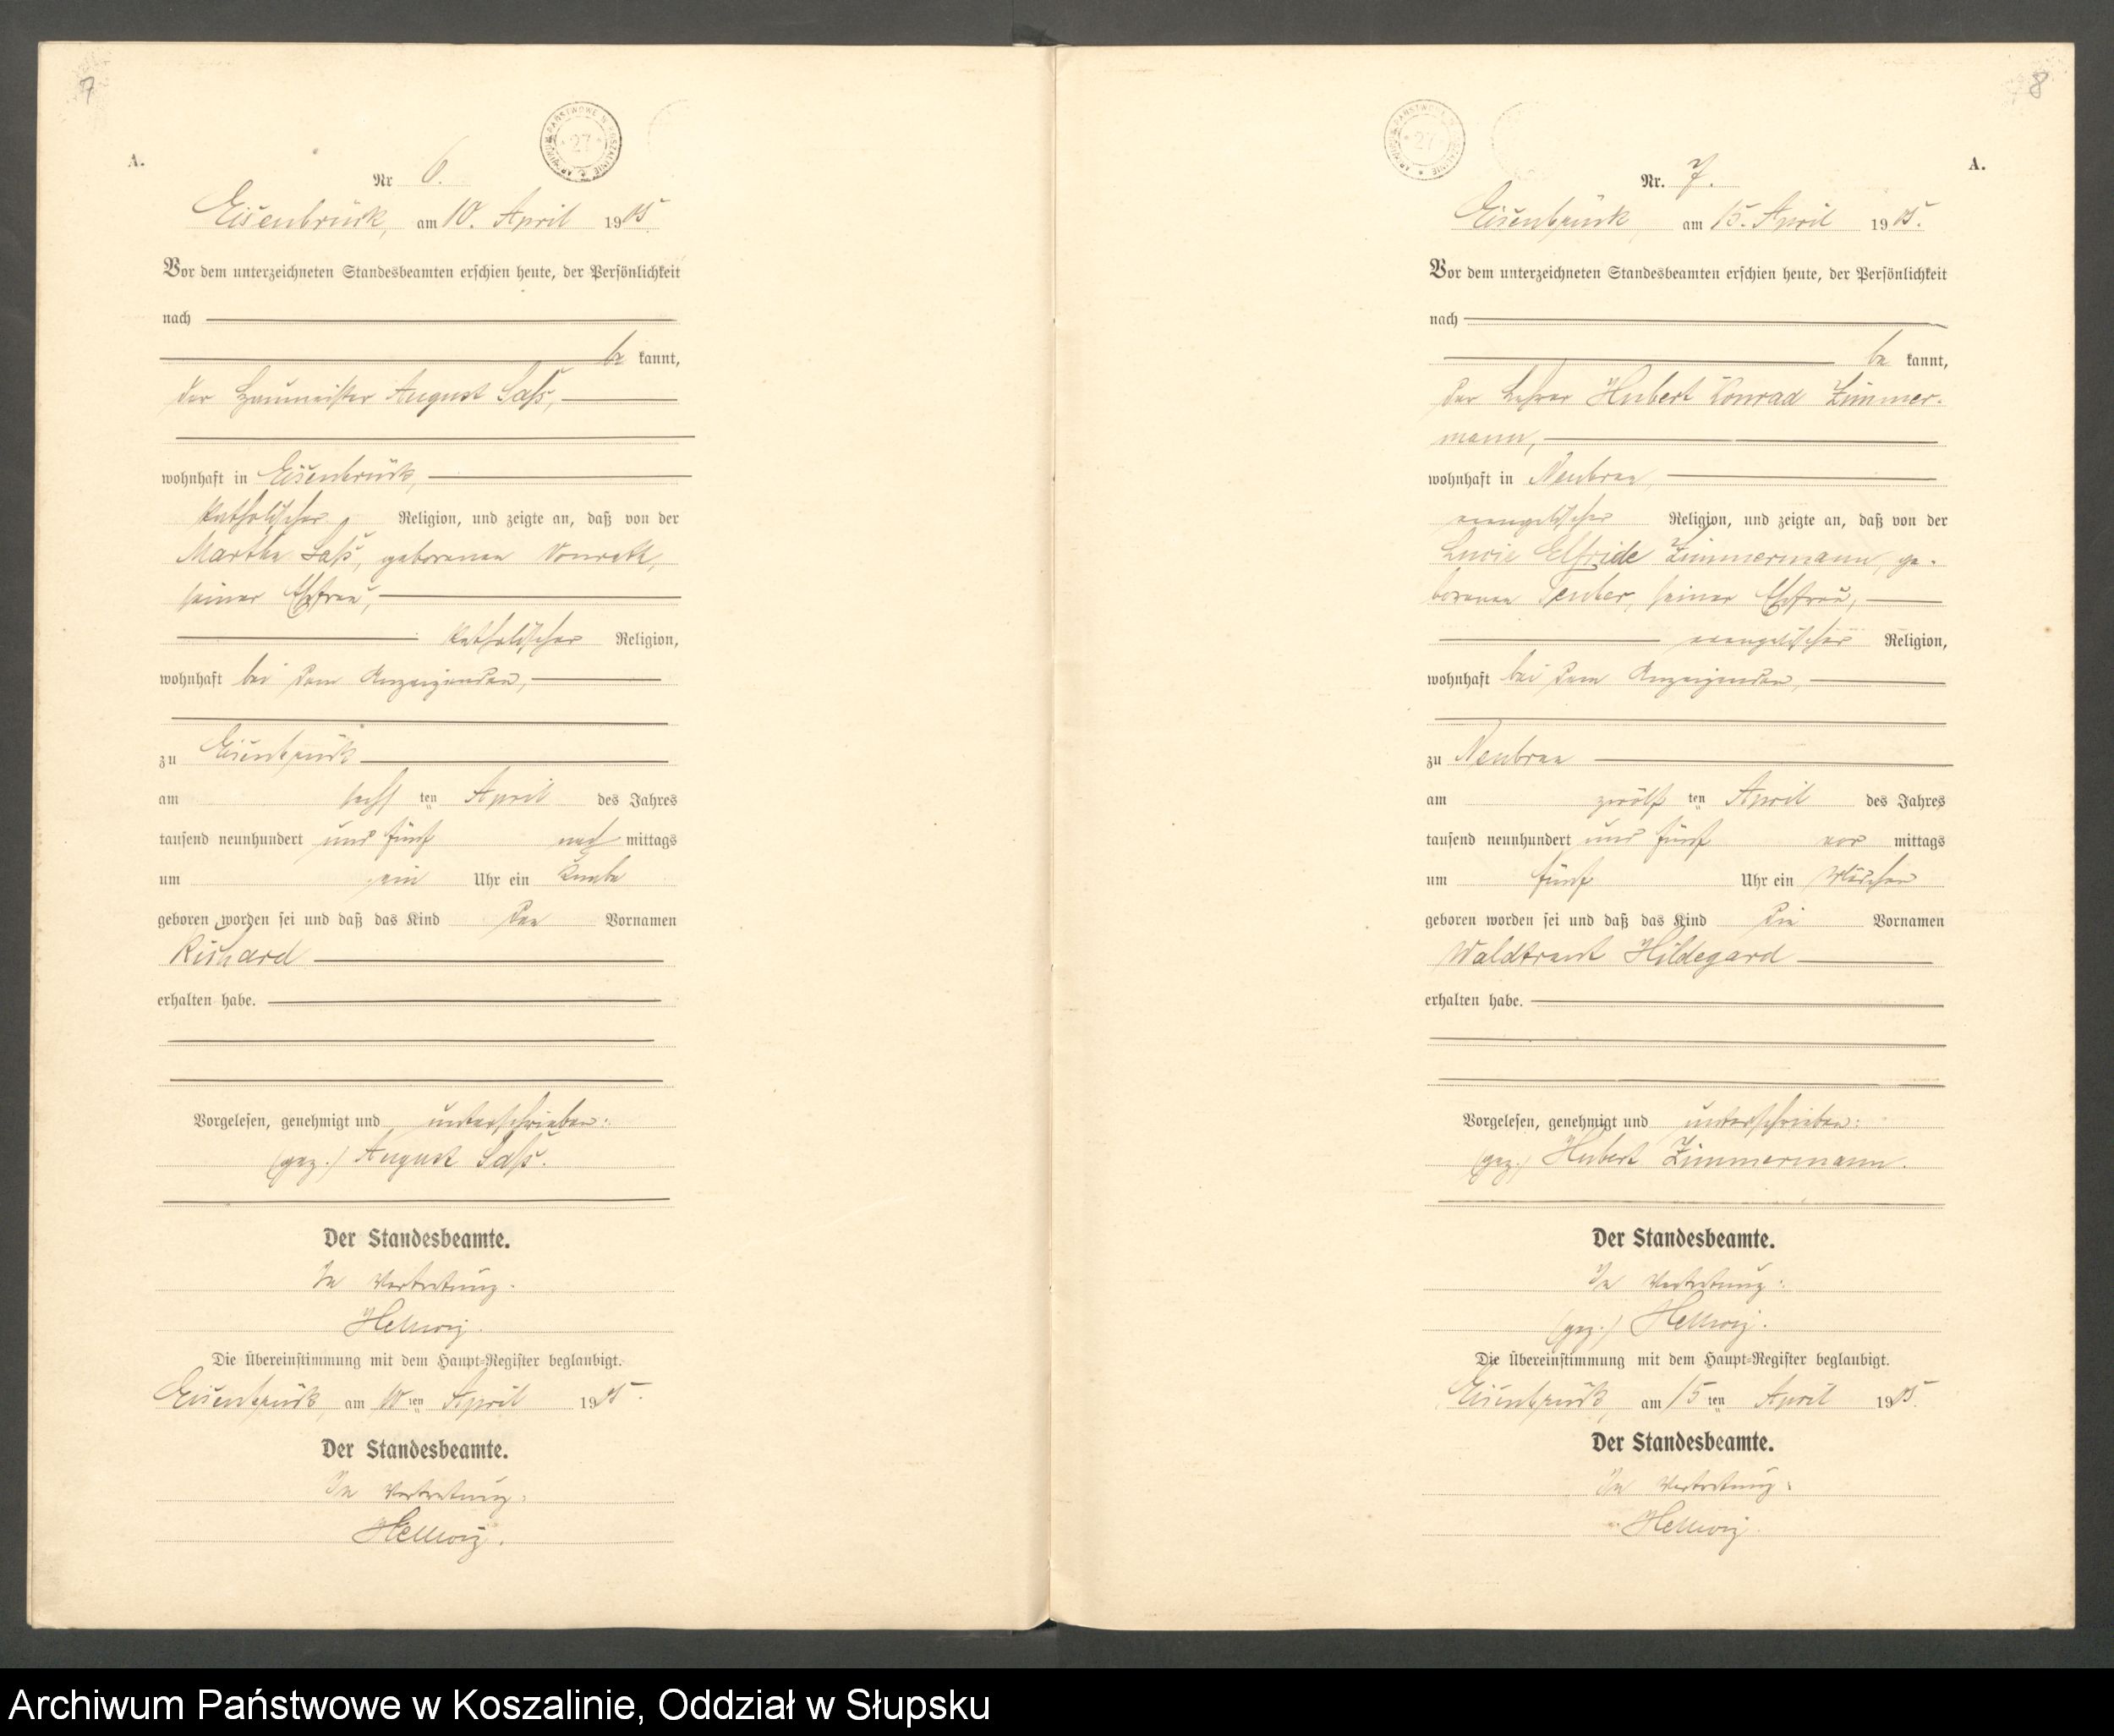 7
ARCHIWUM PAŃSTWOWE W KOSZALINIE
27
A.
Nr 6.
Eisenbrück, am 10. April 1905.
Vor dem unterzeichneten Standesbeamten erschien heute, der Persönlichkeit
nach
be kannt,
der August Saß,
wohnhaft in Eisenbrück,
katholischer Religion, und zeigte an, daß von der
Martha Saß, geborenen
seiner Ehefrau,
katholischer Religion,
wohnhaft bei dem Anzeigenden,
zu Eisenbrück
am sechsten April des Jahres
tausend neunhundert und fünf nachmittags
um ein Uhr ein Knabe
geboren worden sei und daß das Kind den Vornamen
Richard
erhalten habe.
Vorgelesen, genehmigt und unterschrieben:
(gez.) August Saß.
Der Standesbeamte.
In Vertretung.
Hellwig.
Die Übereinstimmung mit dem Haupt-Register beglaubigt.
Eisenbrück, am 10ten April 1905.
Der Standesbeamte.
In Vertretung:
Hellwig.
8
ARCHIWUM PAŃSTWOWE W KOSZALINIE
27
A.
Nr. 7.
Eisenbrück, am 15. April 1905.
Vor dem unterzeichneten Standesbeamten erschien heute, der Persönlichkeit
nach
be kannt,
der Lehrer Hubert Konrad Zimmer-
mann,
wohnhaft in Neubraa,
evangelischer Religion, und zeigte an, daß von der
Lucie Elfride Zimmermann, ge-
borenen seiner Ehefrau,
evangelischer Religion,
wohnhaft bei dem Anzeigenden,
zu Neubraa
am zwölften April des Jahres
tausend neunhundert und fünf vormittags
um fünf Uhr ein Mädchen
geboren worden sei und daß das Kind die Vornamen
Waldtraut Hildegard
erhalten habe.
Vorgelesen, genehmigt und unterschrieben:
(gez.) Hubert Zimmermann.
Der Standesbeamte.
In Vertretung:
(gez.) Hellwig.
Die Übereinstimmung mit dem Haupt-Register beglaubigt.
Eisenbrück, am 15ten April 1905.
Der Standesbeamte.
In Vertretung:
Hellwig.
Archiwum Państwowe w Koszalinie, Oddział w Słupsku